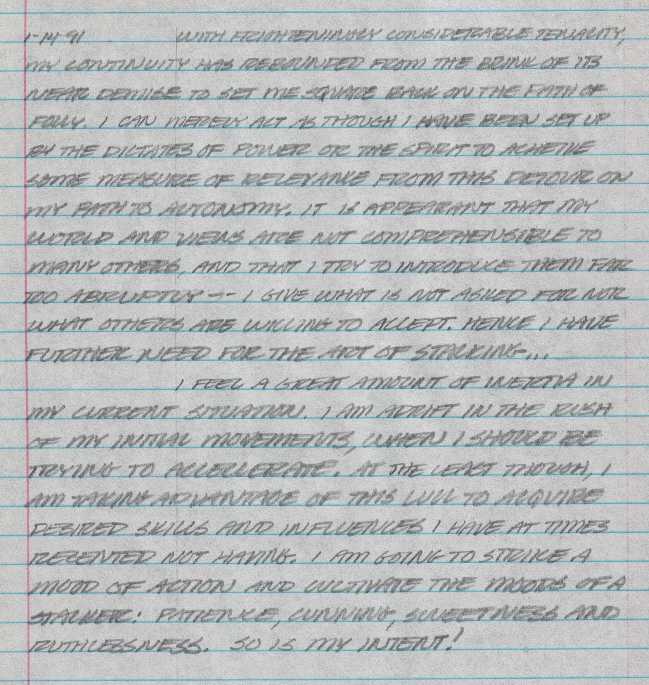 1-14-91 WITH FRIGHTENINGLY CONSIDERABLE TENACITY,
MY CONTINUITY HAS REBOUNDED FROM THE BRINK OF ITS
NEAR DEMISE TO SET ME SQUARE BACK ON THE PATH OF
FOLLY. I CAN MERELY ACT AS THOUGH I HAVE BEEN SET UP
BY THE DICTATES OF POWER OR THE SPIRIT TO ACHEIVE
SOME MEASURE OF RELEVANCE FROM THIS DETOUR ON
MY PATH TO AUTONOMY. IT IS APPEARANT THAT MY
WORLD AND VIEWS ARE NOT COMPREHENSIBLE TO
MANY OTHERS, AND THAT I TRY TO INTRODUCE THEM FAR
TOO ABRUPTLY -- I GIVE WHAT IS NOT ASKED FOR NOR
WHAT OTHERS ARE WILLING TO ACCEPT. HENCE I HAVE
FURTHER NEED FOR THE ART OF STALKING...
I FEEL A GREAT AMOUNT OF INERTIA IN
MY CURRENT SITUATION. I AM ADRIFT IN THE RUSH
OF MY INITIAL MOVEMENTS, WHEN I SHOULD BE
TRYING TO ACCELLERATE. AT THE LEAST THOUGH, I
AM TAKING ADVANTAGE OF THIS LULL TO ACQUIRE
DESIRED SKILLS AND INFLUENCES I HAVE AT TIMES
RECENTED NOT HAVING. I AM GOING TO STRIKE A
MOOD OF ACTION AND CULTIVATE THE MOODS OF A
STALKER: PATIENCE, CUNNING, SWEETNESS AND
RUTHLESSNESS. SO IS MY INTENT!